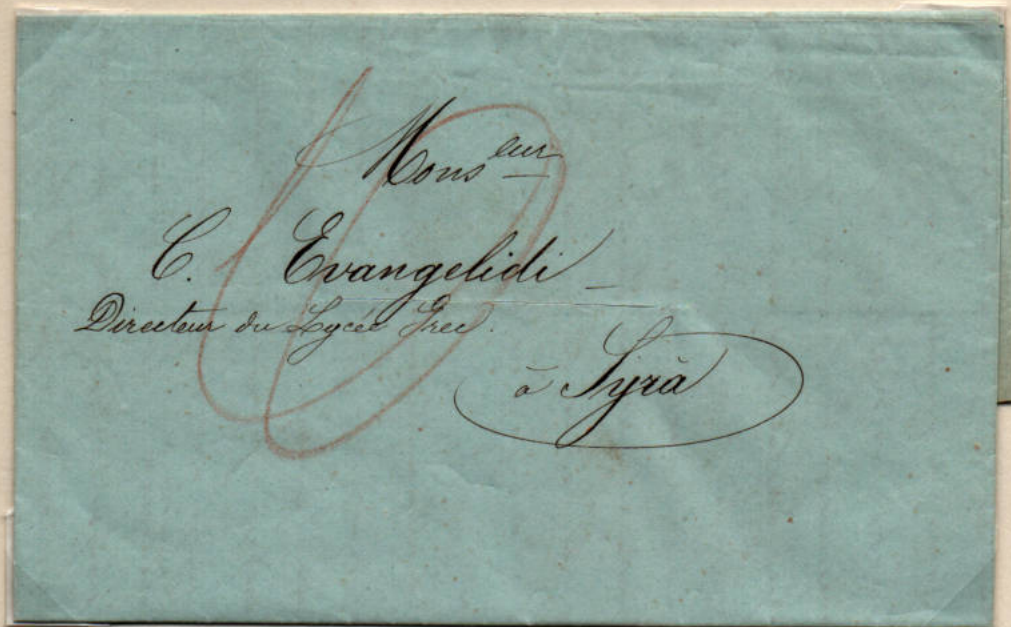 Mons<sup>eur</sup>
C. Evangelidi
Directeur du Lycée Grec.
à Syrà